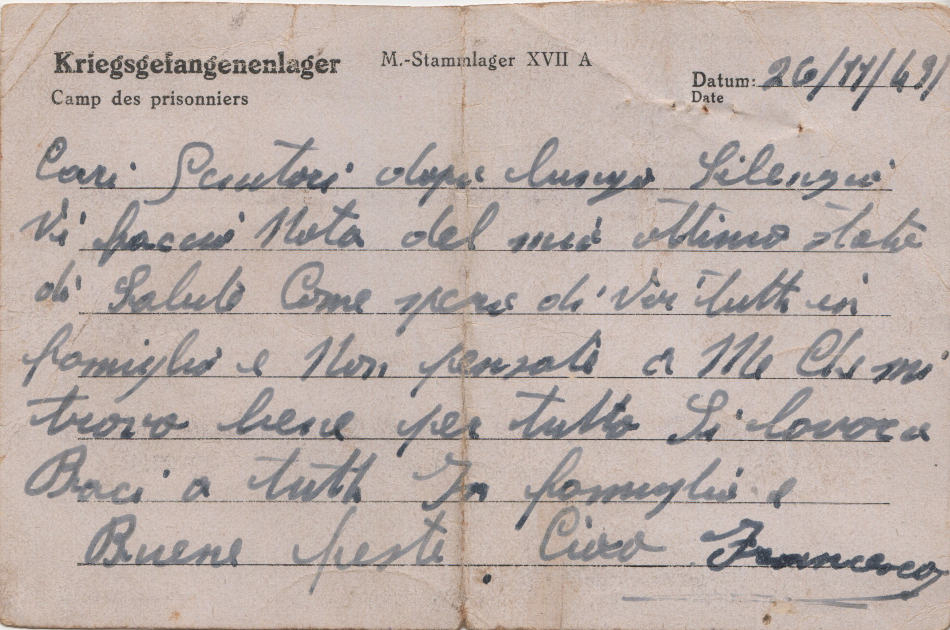 Kriegsgefangenenlager M.-Stammlager XVII A
Camp des prisonniers
Datum: 26/11/43/
Date
Cari Genitori dopo lungo Silenzio
Vi faccio Nota del mio ottimo stato
di Salute Come spero di Voi tutti in
famiglia e Non pensate a Me Che mi
trovo bene per tutto Si lavora
Baci a tutti In famiglia e
Buone feste Ciao Francesco